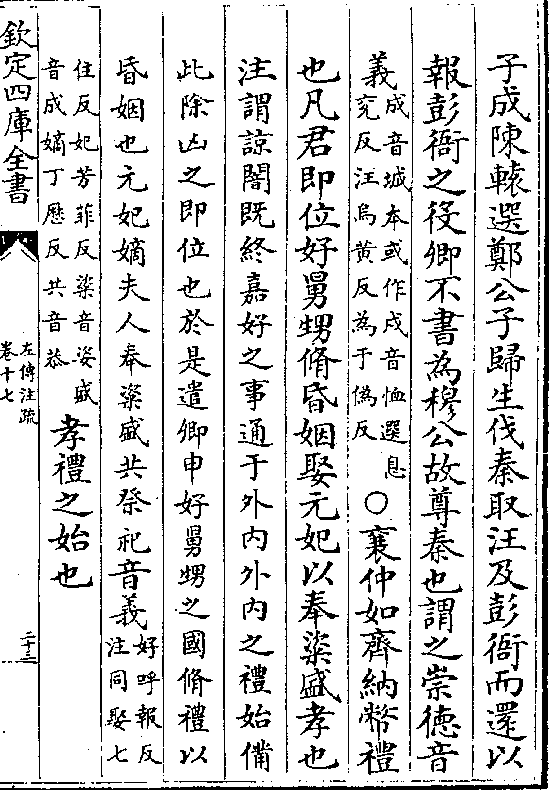 子成陳轅選鄭公子歸生伐秦取汪及彭衙而還以
報彭衙之役卿不書為穆公故尊秦也謂之崇徳音
義成音城本或作戍音恤選息
兖反汪烏黄反為于偽反○襄仲如齊納幣禮
也凡君即位好舅甥脩昏姻娶元妃以奉粢盛孝也
注謂諒闇既終嘉好之事通于外内外内之禮始備
此除凶之即位也於是遣卿申好舅甥之國脩禮以
昏姻也元妃嫡夫人奉粢盛共祭祀音義好呼報反
注同娶七
住反妃芳菲反粢音姿盛
音成嫡丁歴反共音恭孝禮之始也
欽定四庫全書
左傳注疏
卷十七
二十三